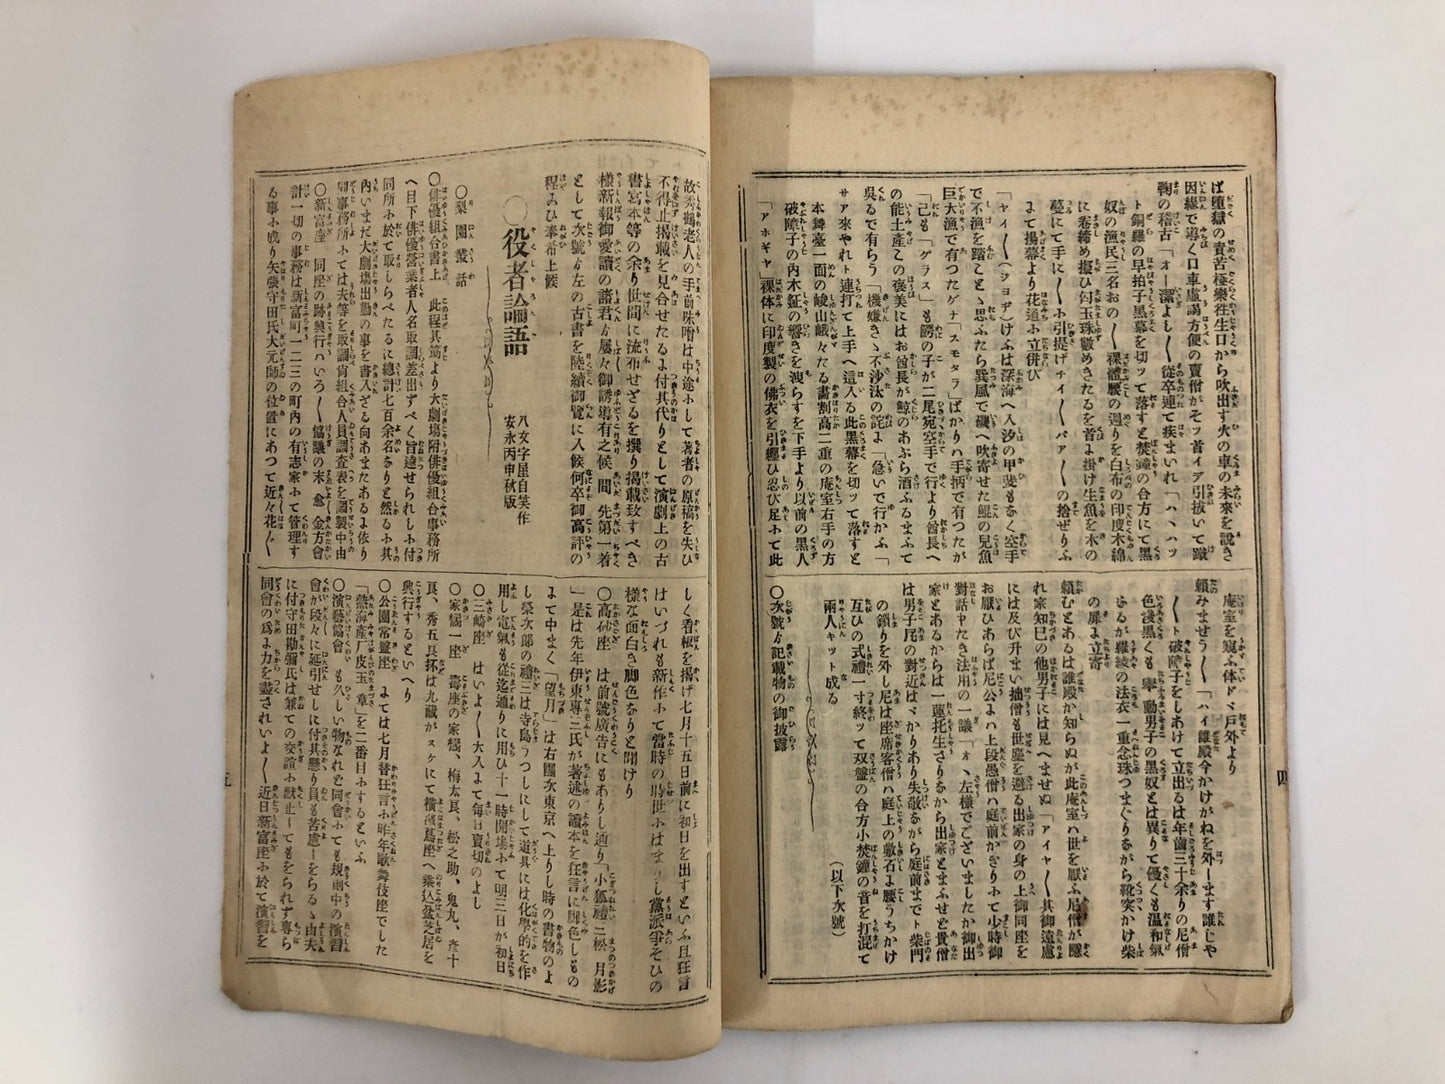 ば堕獄の責苦極樂徃生口から吹出す火の車の未來を說き
因緣で導く口車虛謁方便の賣僧がそッ首イア引拔いて蹴
鞠の稽古「オー潔よし〱從卒連て疾まいれ「ハヽハッ
ト銅鑼の早拍子黑幕を切ッて落すと焚鐘の合方にて黑
奴の漁民三名おの〱裸體腰の廻りを白布の印度木綿
に卷締め擬ひ勾玉珠數めきたるを首よ掛け生魚を木の
蔓にて手に〱ふ引提げチイ〱バア〱の捨ぜりふ
よて揚幕より花道ふ立併び
「ヤイ〱(ヲヨヂ)けふは深海へ入汐の甲斐もなく空手
で不漁を踏ことゝ思ふたら巽風で磯へ吹寄せた鯤の兒魚
巨大漁で有つたゲナ「スモタラ」ばかりハ手柄で有つたが
「己も「ゲラス」も鰐の子が二尾宛空手で行より酋長へ
の能土產この褒美にはお酋長が鯨のあぶら酒ふるまふて
吳るで有らう「機嫌きゝ不沙汰の詫よ「急いで行かふ「
サア來やれト連打て上手へ這入る此黑幕を切ッて落すと
本舞臺一面の峻山峨々たる書割高二重の庵室右手の方
破障子の內木鉦の響きを洩らすを下手より以前の黑人
「アホギヤ」裸体に印度製の佛衣を引纒ひ忍び足ふて此
庵室を窺ふ体ドヽ戶外より
賴みませう〱「ハイ誰殿今かけがねを外ーます誰じや
〱ト破障子をしあけて立出るは年齒三十余りの尼僧
色淺黑くも擧動男子の黑奴とは異りて優くも溫和氣
なるが羅綾の法衣一重念珠つまぐりながら靴突かけ柴
の扉よ立寄
賴むとあるは誰殿か知らぬが此庵室ハ世を厭ふ尼僧が隱
れ家知巳の他男子には見へませぬ「アイヤ〱其御遠慮
には及び升まい拙僧も世塵を避る出家の身の上御同座を
お厭ひあらば尼公よハ上段愚僧ハ庭前かぎりふて少時御
對話申たき法用の一議「オヽ左樣でございましたか御出
家とあるからは一蓮托生さりながら出家とまふせど貴僧
は男子尼の對近はヾかりあり失敬ながら庭前までト柴門
の鎖りを外し尼は座席客僧ハ庭上の敷石よ腰うちかけ
互ひの式禮一寸終ッて双盤の合方小焚鐘の音を打混て
兩人キット成る
(以下次號)
〇次號ふ記載物の御披露
四
故秀鶴老人の手前味噌は中途ふして著者の原稿を失ひ
不得止揭載を見合せたるよ付其代りとして演劇上の古
書寫本等の余り世間に流布せざるを撰り揭載致すべき
樣新報御愛讀の諸君よ屢々御誘導有之候間先第一着
として次號ふ左の古書を陸續御覽に入候何卒御高評の
程よひ奉希上候
〇役者論語
八文字屋自笑作
安永丙申秋版
〇梨園叢話
〇俳優組合書上 此程其筋より大劇塲附俳優組合事務所
へ目下俳優營業者人名取調差出すべく旨達せられしふ付
同所ふ於て取しらべたるに總計七百余名なりと然るふ其
內いまだ大劇塲出勤の事を書入ざる向あまたあるよ依り
同事務所ふては夫等を取調肯組合人員調査表を調製中由
〇新富座 同座の跡興行ハいろ〱恊議の末愈金方會
計一切の事務は新富町一二三の町內の有志家ふて管理す
る事ふ成り矢張守田氏大元師の位置にあつて近々花〱
しく看板を揚げ七月十五日前に初日を出すといふ且狂言
はいづれも新作ふて當時の時世ふはまりし黨派爭そひの
樣な面白き脚色なりと聞けり
〇高砂座 は前號廣告にもありし通り「小狐禮三松月影
」是は先年伊東專三氏が著述の讀本を狂言に脚色しもの
よて中まく「望月」は右團次東京へ上りし時の書物のよ
し榮次郎の禮三は寺島うつしにして道具には化學的を作
用し電氣も從迄通りに用ひ十一時開塲ふて明三日が初日
〇三崎座 はいよ〱大入よて每日賣切のよし
〇家橘一座 壽座の家橘、梅太良、松之助、鬼丸、彥十
良、秀五良抔は九藏がスケにて橫濱蔦座へ乘込盆芝居を
興行するといへり
〇公園常盤座 よては七月替狂言ふ昨年歌舞伎座でした
「熱海產厂皮玉章」を二番目ふするといふ
〇演藝恊會 も久しい物なれど同會ふても規則中の演習
會が段々に延引せしに付其懸り員も苦慮ーをらるゝ由夫
に付守田勘彌氏は兼ての交誼ふ默止ーてもをられず專ら
同會の爲よ力を盡されいよ〱近日新富座ふ於て演習を
五